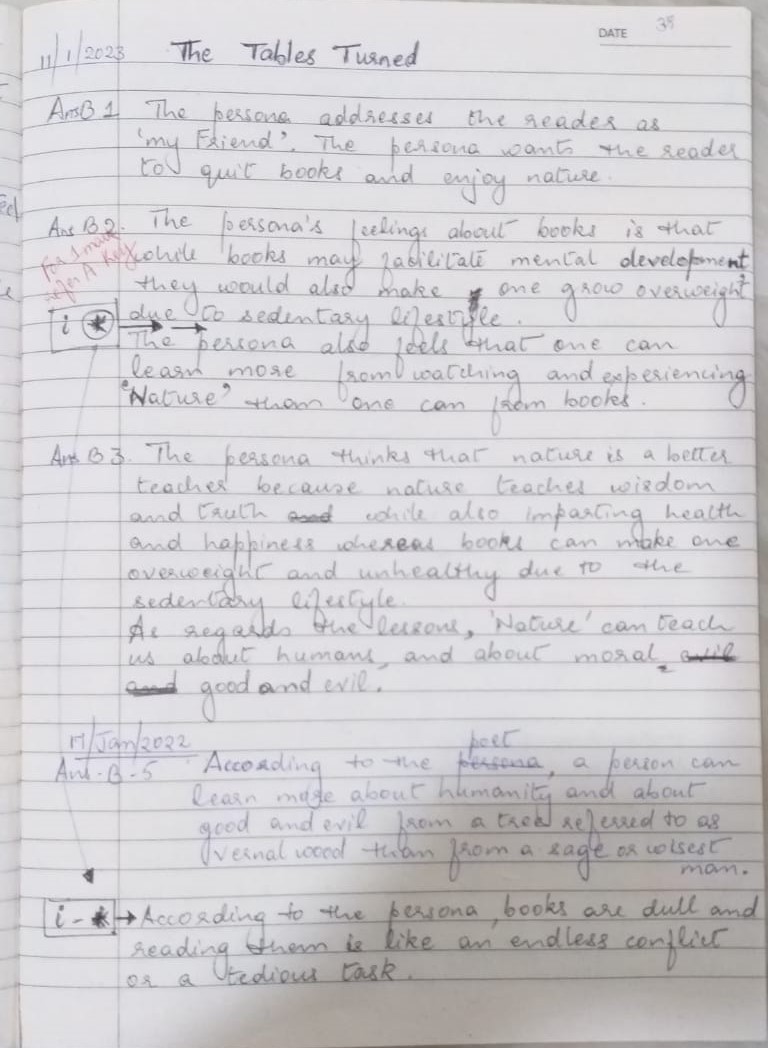 DATE 35
11/1/2023 The Tables Turned
Ans B 1 The persona addresses the reader as
'my Friend'. The persona wants the reader
to quit books and enjoy nature.
Ans B 2. The persona's feelings about books is that
For 1 mark
while books may facilitate mental development
refer A Key
they would also make one grow overweight
i * due to sedentary lifestyle.
The persona also feels that one can
learn more from watching and experiencing
'Nature' than one can from books.
Ans B 3. The persona thinks that nature is a better
teacher because nature teaches wisdom
and truth and while also imparting health
and happiness whereas books can make one
overweight and unhealthy due to the
sedentary lifestyle.
As regards the lessons, 'Nature' can teach
us about humans, and about moral, evil
and good and evil.
17/Jan/2022 poet
Ans-B-5 According to the persona, a person can
learn more about humanity and about
good and evil from a tree referred to as
vernal wood than from a sage or wisest
man.
i-* → According to the persona, books are dull and
reading them is like an endless conflict
or a tedious task.